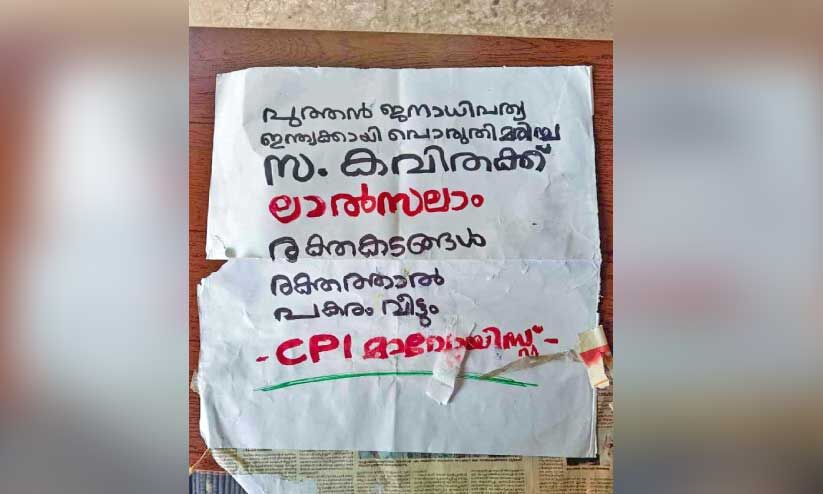 പുത്തൻ ജനാധിപത്യ
ഇന്ത്യക്കായി പൊരുതി മരിച്ച
സ. കവിതക്ക്
ലാൽസലാം
രക്തകടങ്ങൾ
രക്തത്താൽ
പകരം വീട്ടും
-CPI മാവോയിസ്റ്റ്-